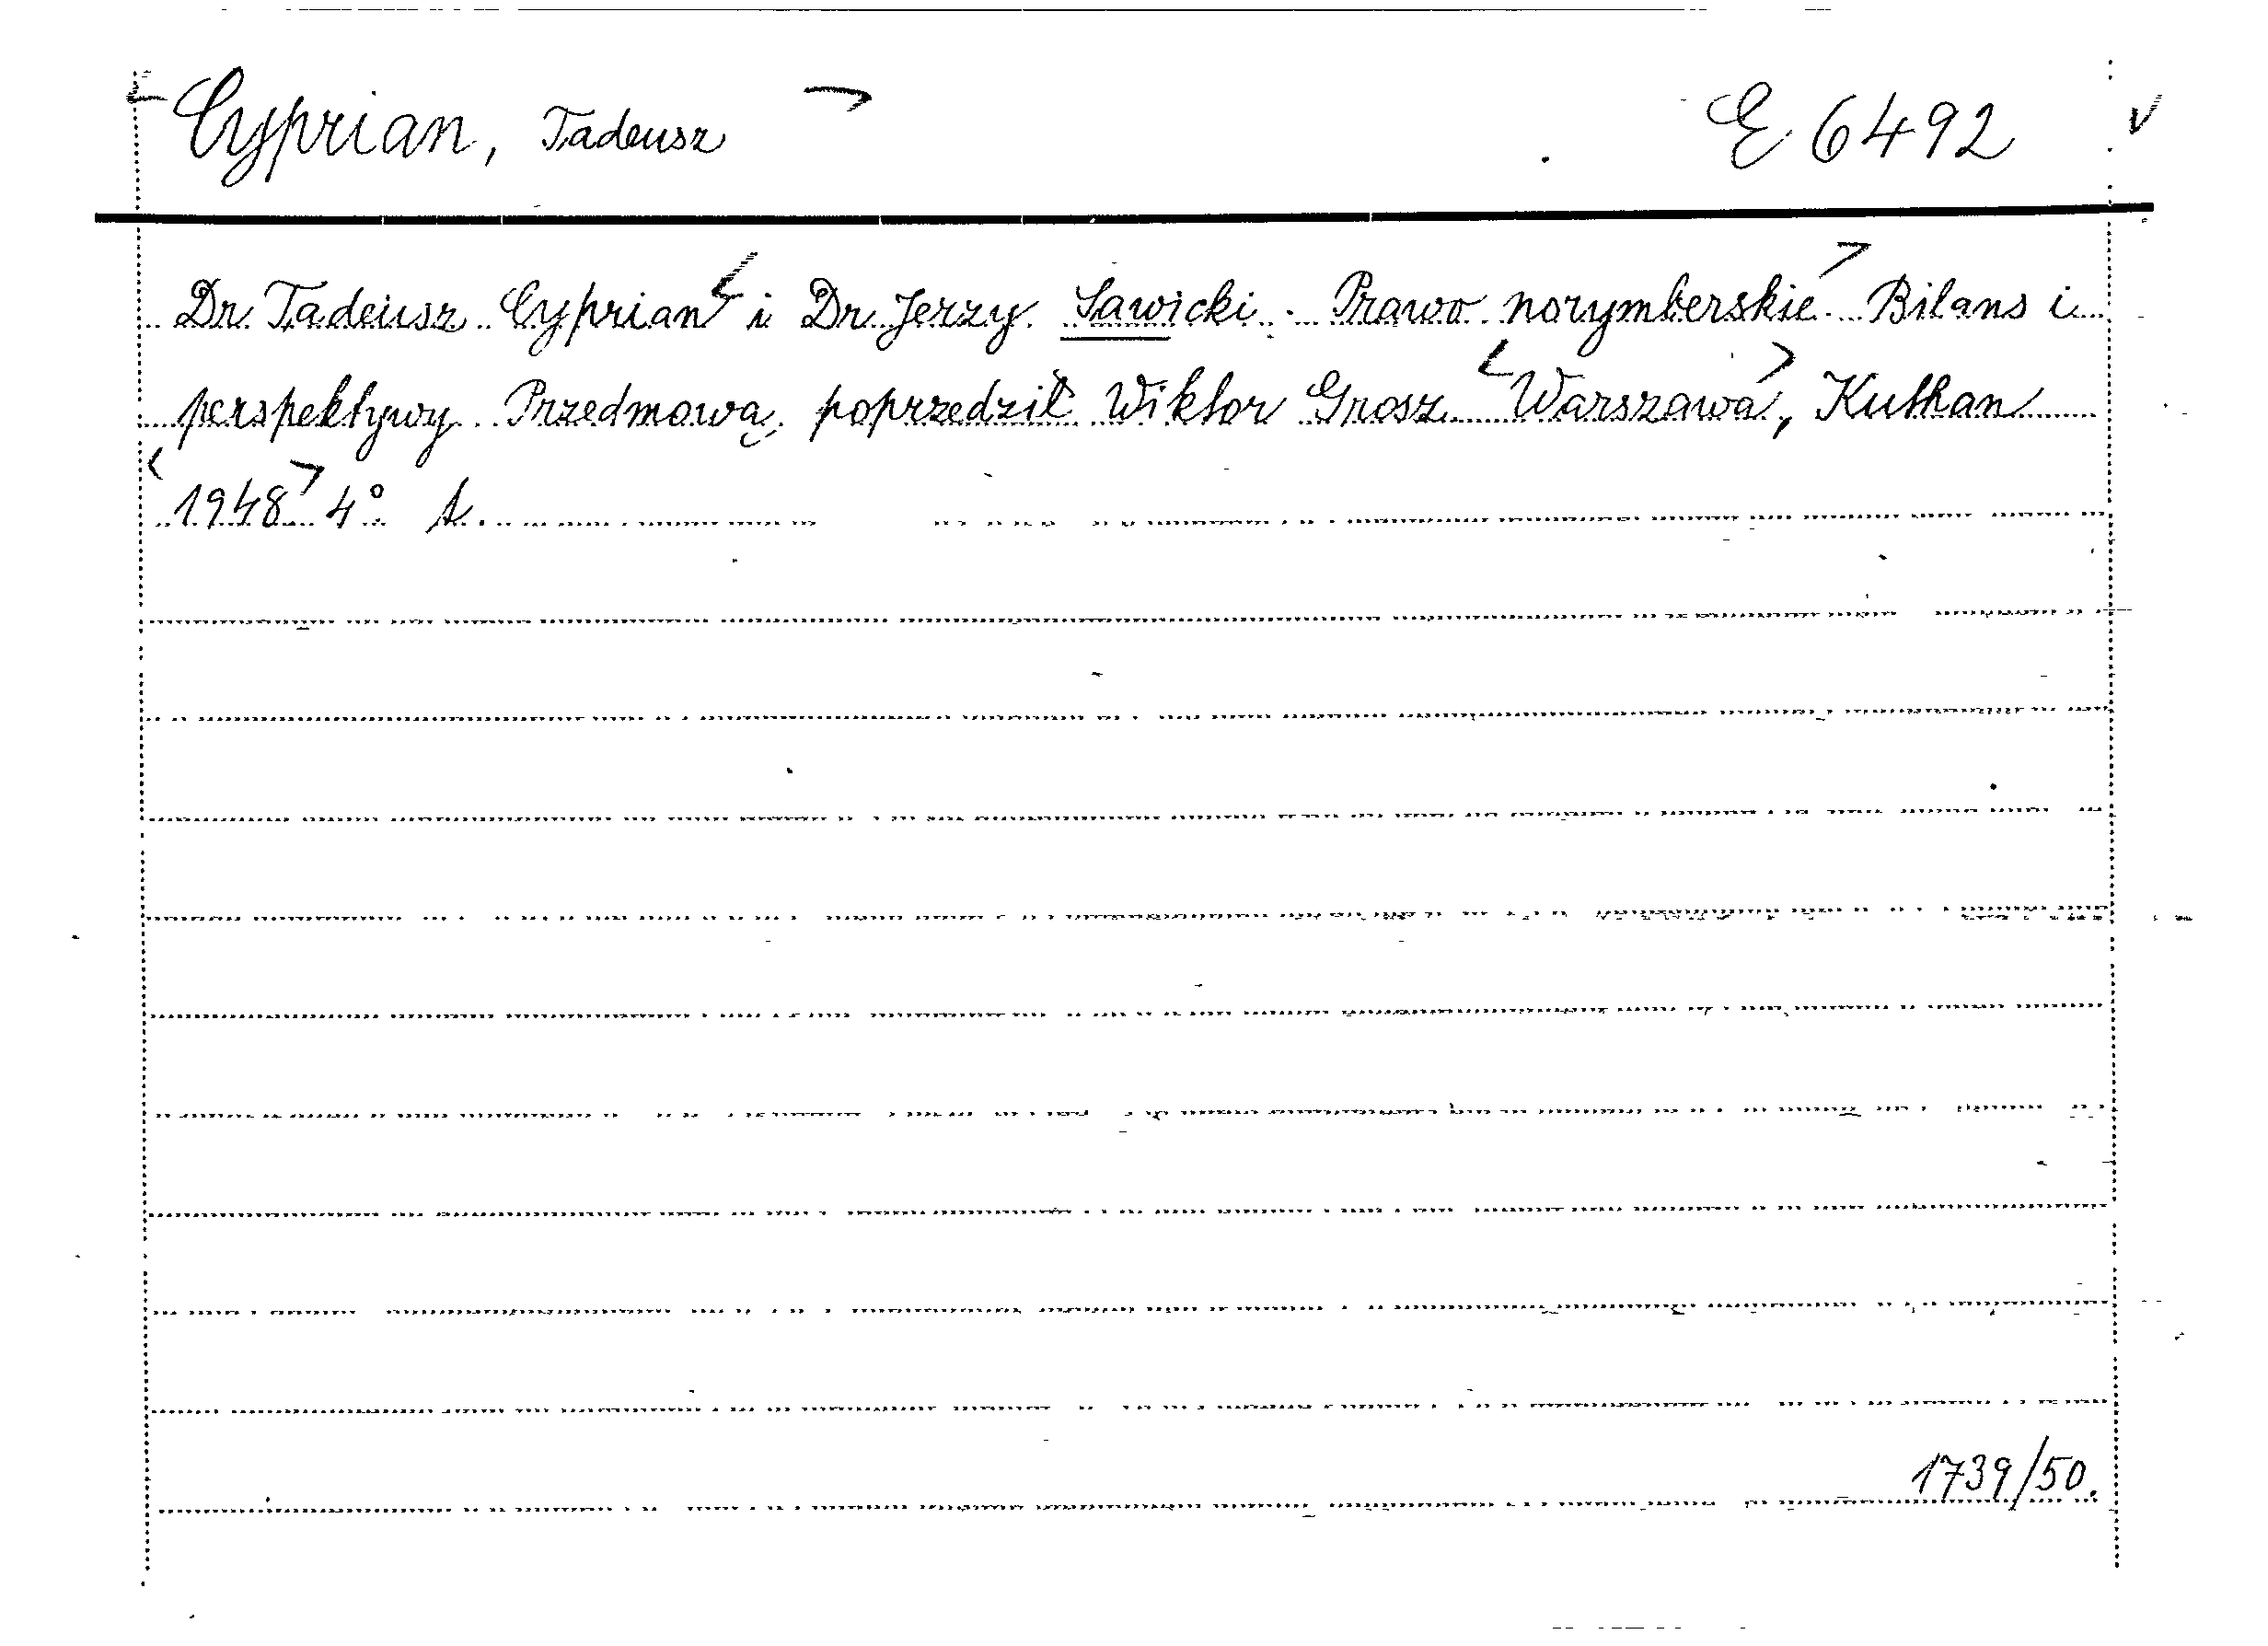 Cyprian, Tadeusz E 6492
Dr. Tadeusz Cyprian i Dr. Jerzy Sawicki. Prawo norymberskie. Bilans i
perspektywy. Przedmową poprzedził Wiktor Grosz. Warszawa, Kuthan
1948. 4° s.
1739/50.